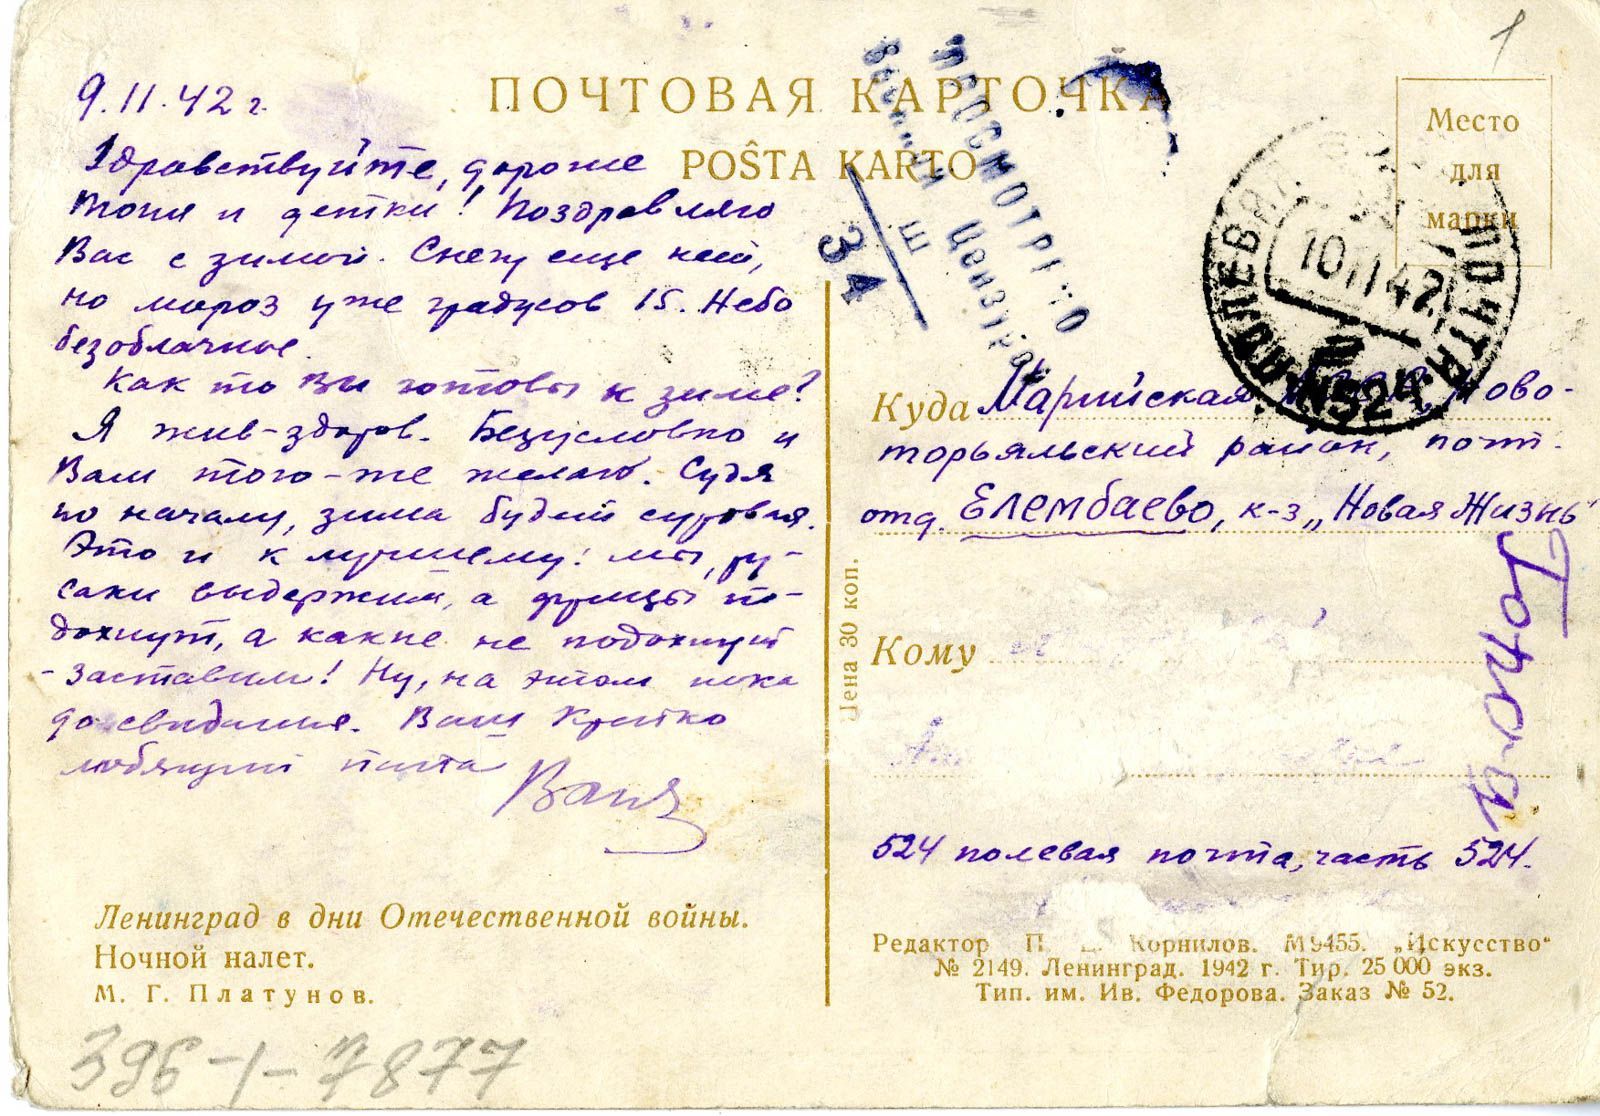 1
9.11.42 г.
ПОЧТОВАЯ КАРТОЧКА
POŜTA KARTO
Место
для
марки
ПРОСМОТРЕНО
Военной Цензурой
Ш
34
ПОЛЕВАЯ ПОЧТА
10 11 42
N524
Здравствуйте, дорогие
Тоня и детки! Поздравляю
Вас с зимой. Снегу еще нет,
но мороз уже градусов 15. Небо
безоблачное.
Как то Вы готовы к зиме?
Я жив-здоров. Безусловно и
Вам того-же желаю. Судя
по началу, зима будет суровая.
Это и к лучшему: мы, ру-
саки выдержим, а фрицы по-
дохнут, а какие не подохнут
- заставим! Ну, на этом пока
до свидания. Ваш крепко
любящий папа
Ваня
Куда Марийская АССР, Ново-
торьяльский район, почт.
отд. Елембаево, к-з „Новая Жизнь"
Кому
524 полевая почта, часть 524.
Цена 30 коп.
Ленинград в дни Отечественной войны.
Ночной налет.
М. Г. Платунов.
Редактор П. Е. Корнилов. М 9455. „Искусство"
№ 2149. Ленинград. 1942 г. Тир. 25 000 экз.
Тип. им. Ив. Федорова. Заказ № 52.
396-1-7877